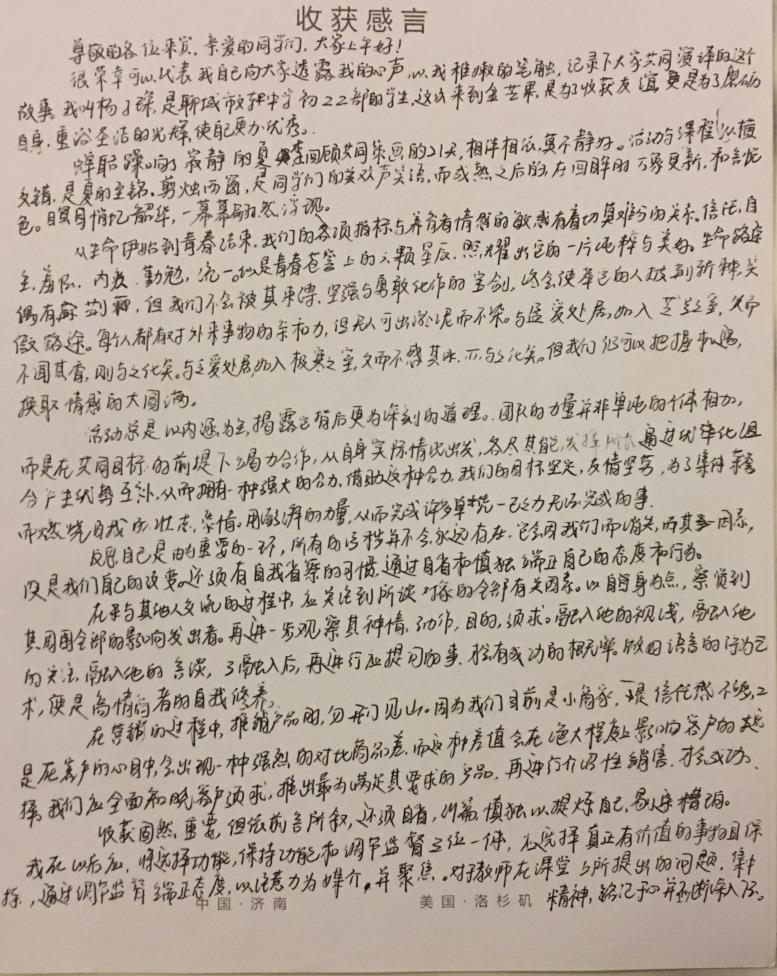 收获感言
尊敬的各位来宾，亲爱的同学们，大家上午好！
很荣幸可以代表我自己向大家透露我的心声，以我稚嫩的笔触，记录下大家共同演译的这个
故事。我叫杨子琛，是聊城市 中学初22部的学生，这次来到金芒果，是为了收获友谊，更是为了磨砺
自身，重浴圣洁的光辉，使自己更加优秀。
蝉聒噪响了寂静的夏季，回顾共同策画的21天，相伴相依，莫不静好。活动与课程纵横
交错，是夏的主铭。剪烛西窗，是同学们的英欢声笑语，而或熟之后的左右回眸时万象更新，和合比
色。瞑目悄忆韶华，一幕幕翩然浮现。
从生命伊始到青春结束，我们的各项指标与养育者情感的敏感有着切莫难分的关系。信任、自
主、羞耻、内疚、勤勉，统一似是青春苍空上的六颗星辰，照耀出它的一片纯粹与美好。生命路途
偶有荆棘，但我们不会被其束缚，坚强与勇敢化作的宝剑，终会使革己的人披荆斩棘，笑
傲路途。每人都有对外来事物的亲和力，但无人可出淤泥而不染。与 爱处居，如入芝兰之室，久而
不闻其香，则与之化矣。与 爱处居，如入极寒之室，久而不感其冰，亦与之化矣。但我们仍可以把握机遇，
换取情感的大圆满。
活动总是以内涵为主，揭露它背后更为深刻的道理。团队的力量并非单纯的个体相加，
而是在共同目标的前提下竭力合作，从自身实际情况出发，各尽其能，发挥所长，通过优单化组
合产生优势互补，从而拥有一种强大的合力，借助这种合力，我们的目标坚定，友情坚实，为了集体荣誉
而燃烧自我的壮志，豪情。用澎湃的力量，从而完成许多单凭一己之力无法完成的事。
反思自己是尤为重要的一环，所有的污秽并不会永远存在，它会因我们而消失，而其主因素，
便是我们自己的改变。还须有自我省察的习惯，通过自省和慎独端正自己的态度和行为。
在平与其他人交流的过程中，应关注到所谈对象的全部有关因素。以自身为点，察觉到
其周围全部的影响发出者。再进一步观察其神情，动作，目的，须求。融入他的视线，融入他
的关注，融入他的言谈，了融入后，再进行应提问的事，才有成功的概率。收回语言的行为艺
术，便是高情商者的自我修养。
在营销的过程中，推销产品时，勿开门见山。因为我们目前是小商家，一是信任感不够，二
是在客户的心目中，会出现一种强烈的对比商品差，而这种差值会在绝大程度上影响客户的选
择，我们应全面知晓客户须求，推出最为满足其要求的产品，再进行介绍性销售，才会成功。
收获固然重要，但依前言所叙，还须自省，以篇慎独以提炼自己，易误精琢。
我在以后应，将选择功能，保持功能和调节监督三位一体，应选择真正有价值的事物目保
持，通过调节监督端正态度，以注意力为媒介，并聚焦。对于教师在课堂上所提出的问题，集中
精神，铭记于心并不断深入了。
中国·济南 美国·洛杉矶